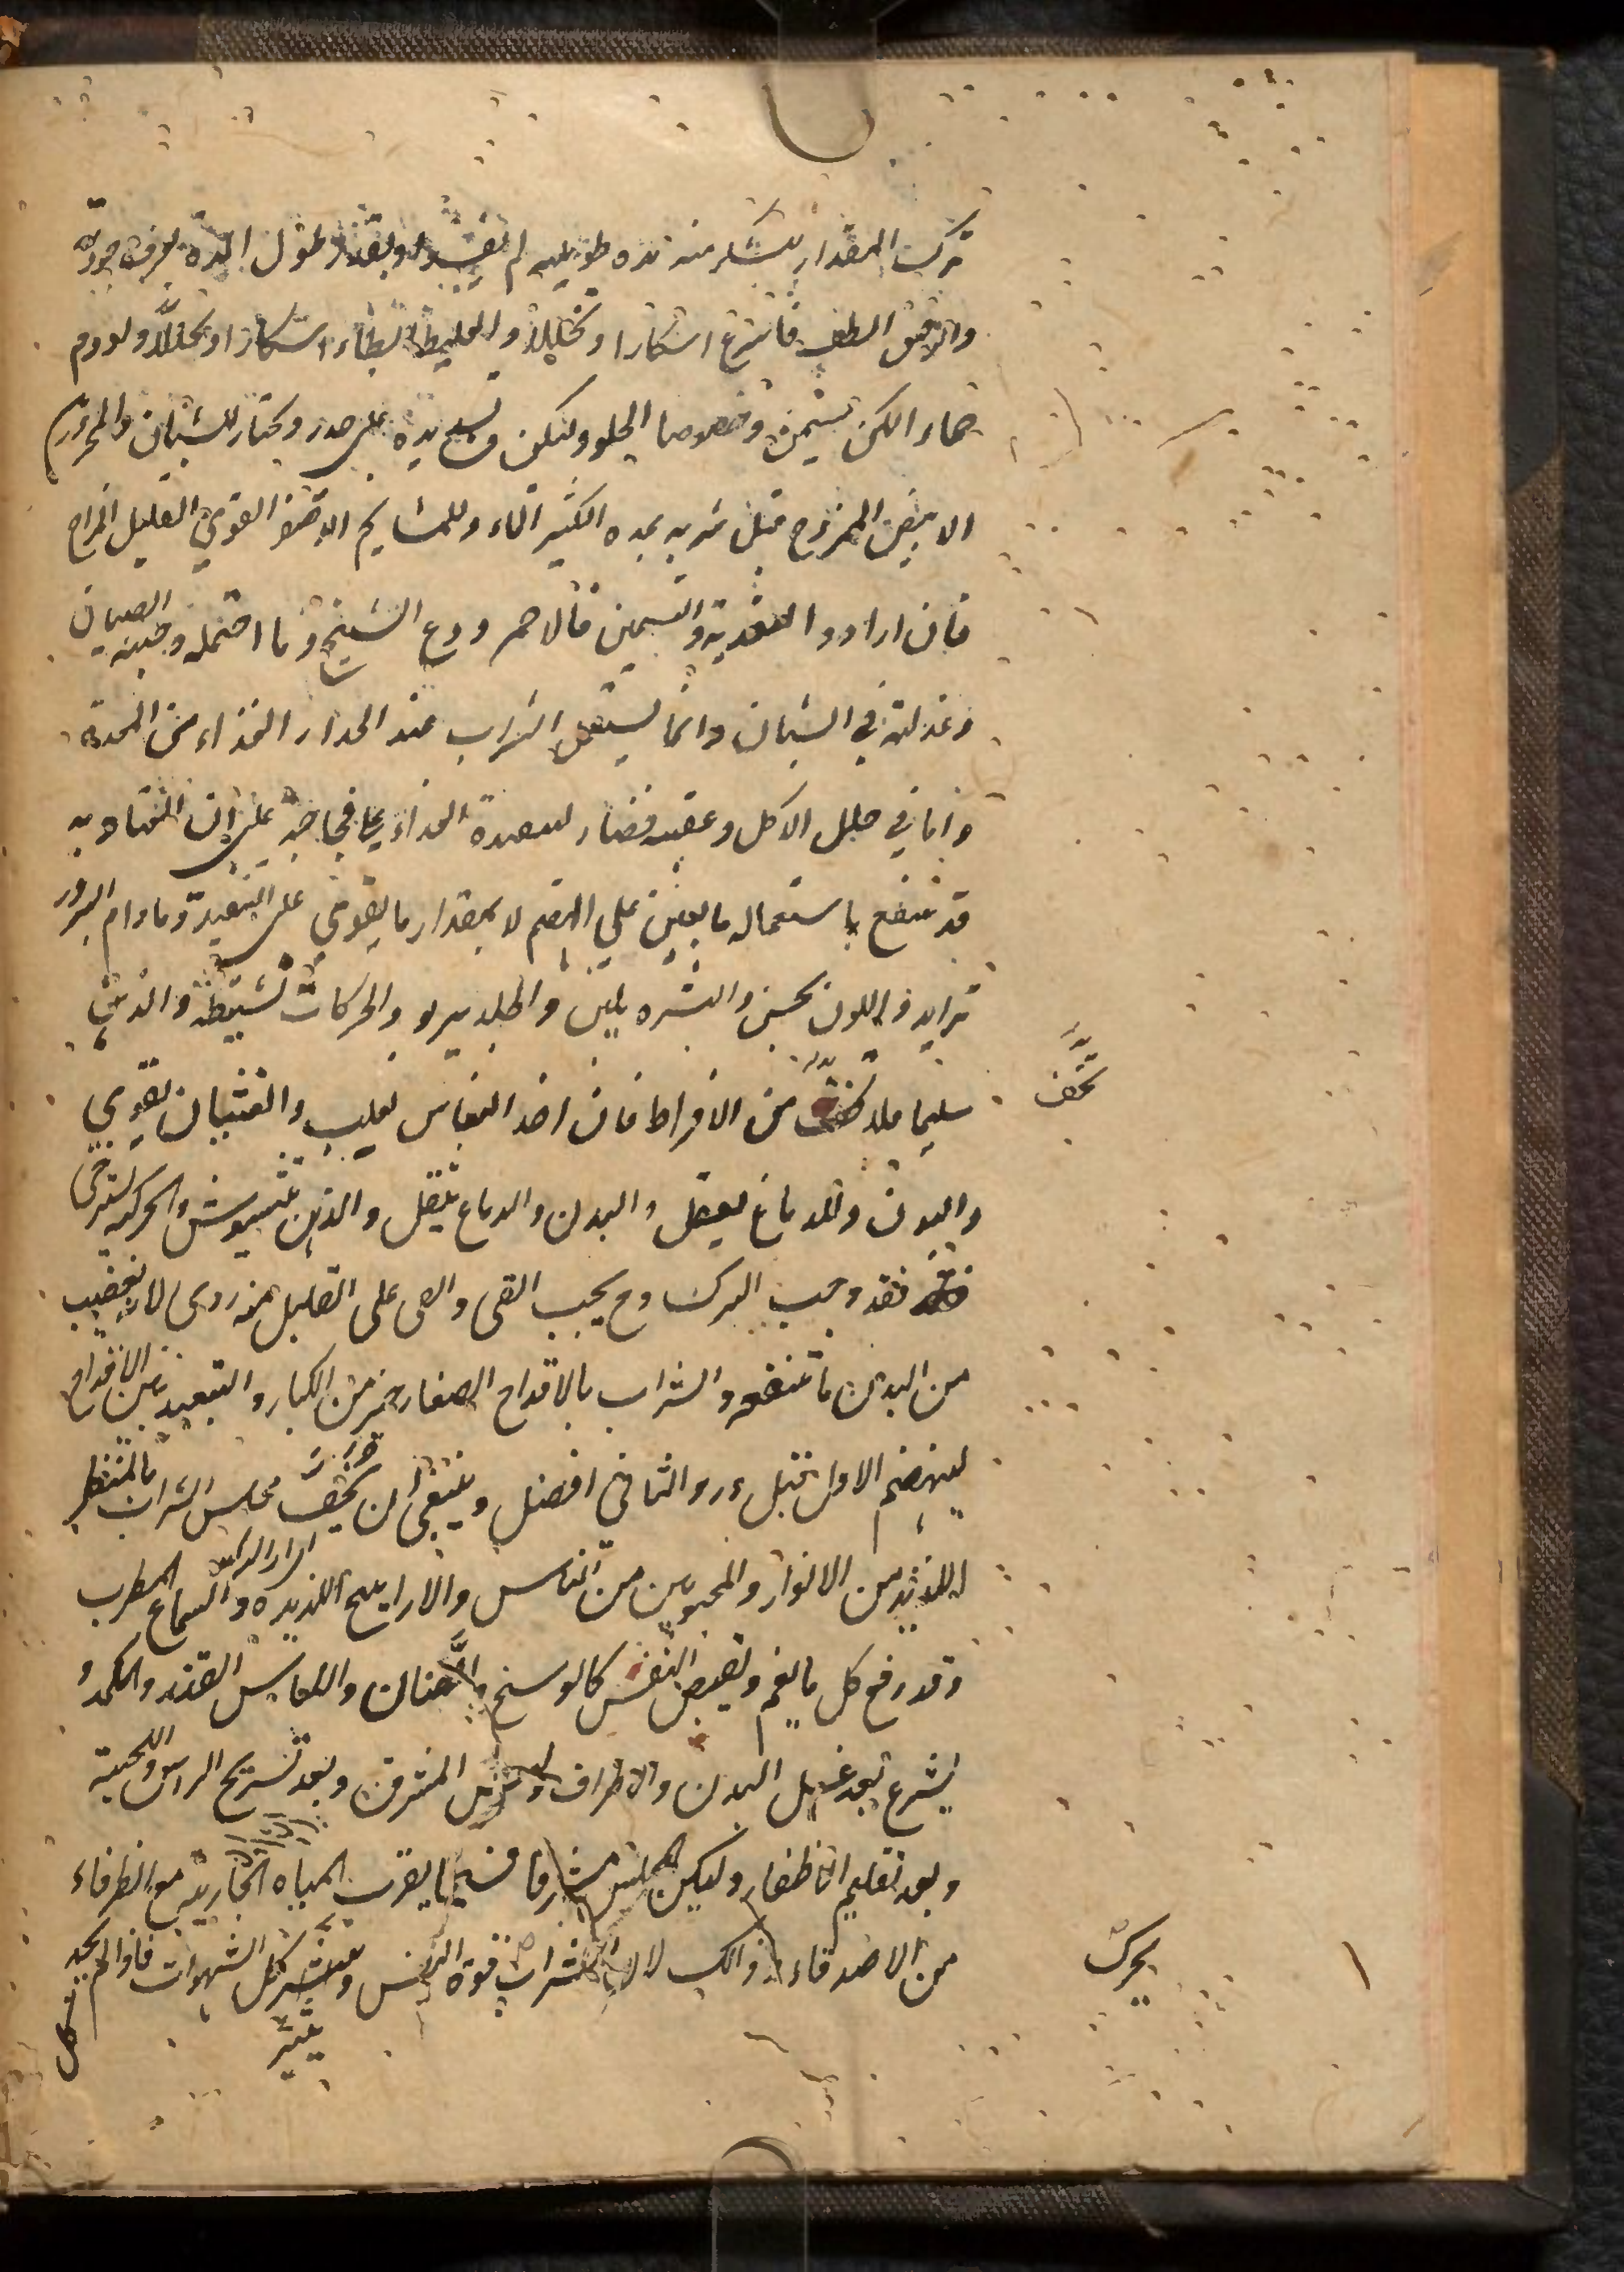 ترك المقدار يسكر منه مده طويله لم يفسد وبقدر طول المدة يعرف جودته
والارق الطف فاسرع اسكارا وتحليلا والغليظ ابطاء اسكارا وتحللا ولودوم
خمارا لكن يسمن وخصوصا الحلو وليكن وتسديده على حذر ويختار للشبان والمحرورين
الابيض الممزوج قبل شربه بمدة الكثير الماء وللمشايخ الاصفر القوي القليل المزاج
فان ارادوا التغذية والتسمين فالاحمر ودع الشيخ وما احتمله وجنبه الصبيان
وعدله في الشبان وانما يستعمل الشراب عند انحدار الغذاء من المعدة
واما في خلل الاكل وعقيبه فضار لتنفيذه الغذاء على فجاجته على ان المعتاد به
قد ينتفع باستعماله ما يعين على الهضم لا بمقدار ما يقوي على التنفيذ وما دام السرور
تزايد واللون يحسن والبشره يلين والجلد يربو والحركات نشيطة والذهن
سليما فلا تخف من الافراط فان اخذ النعاس يغلب والغثيان يقوي
تخف
والبدن والدماغ يثقل والبدن والدماغ يثقل والذهن يتشوش والحركه يسترخي
فقد وجب الترك وح يجب القي والقي على القليل منه ردي لانه يغصب
من البدن ما ينفعه والشراب بالاقداح الصغار خير من الكبار والتبعيد بين الاقداح
لينهضم الاول قبل ورود الثاني افضل وينبغي ان يحف مجلس الشراب بالمنظر
اللذيذ من الانوار والمحبوبين من الناس والاراييح اللذيذه والسماع المطرب
وقد رفع كل ما يغم ويقبض النفس كالوسخ والصنان واللباس القذر والكمد و
يشرع بعد غسل البدن والاطراف ولبس المشرق وبعد تسريح الراس واللحية
وبعد تقليم الاظفار وليكن المجلس مشرفا فسيحا بقرب المياه الجاريه مع الظرفاء
من الاصدقاء وذلك لان الشراب قوة النفس ويثير كل الشهوات فاذا لم يجد
يحرك
يثير
كل